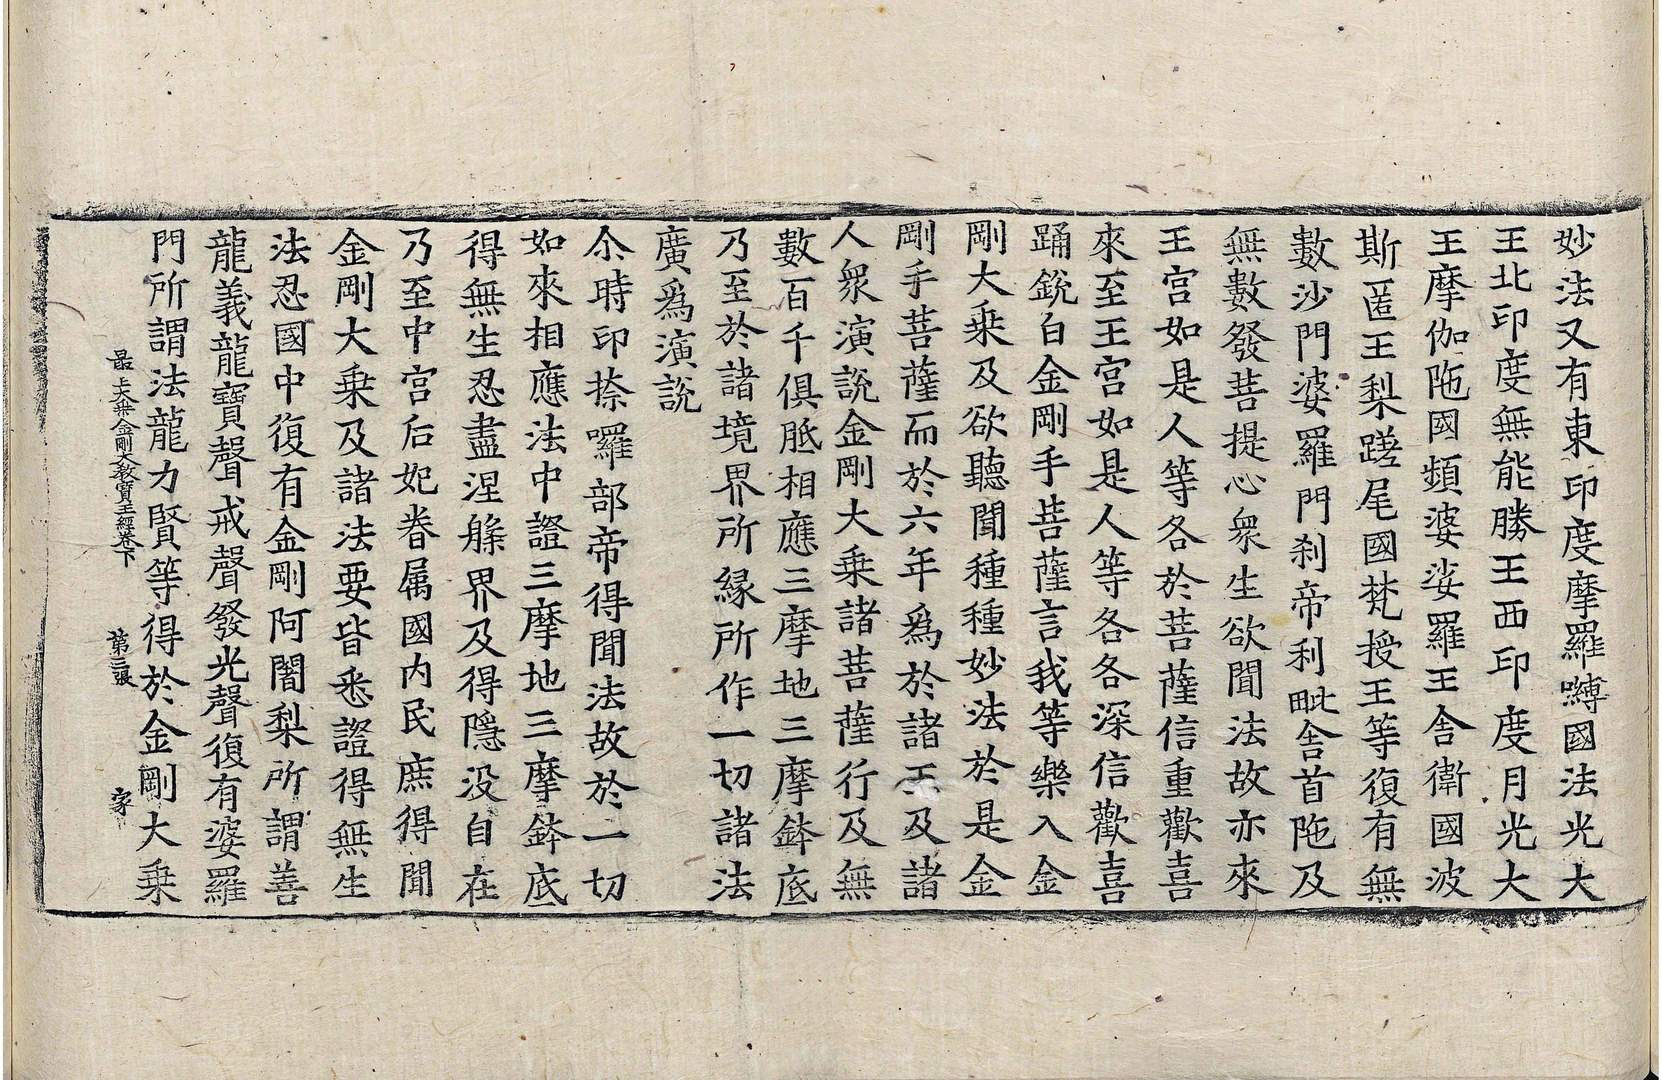 妙法又有東印度摩羅嚩國法光大
王北印度無能勝王西印度月光大
王摩伽陁國頻婆娑羅王舍衛國波
斯匿王梨蹉尾國梵授王等復有無
數沙門婆羅門刹帝利毗舍首陁及
無數發菩提心衆生欲聞法故亦來
王宮如是人等各於菩薩信重歡喜
來至王宮如是人等各各深信歡喜
踊銳白金剛手菩薩言我等樂入金
剛大乗及欲聽聞種種妙法於是金
剛手菩薩而於六年爲於諸王及諸
人衆演說金剛大乗諸菩薩行及無
數百千俱胝相應三摩地三摩鉢底
乃至於諸境界所縁所作一切諸法
廣爲演說
尒時印捺囉部帝得聞法故於一切
如來相應法中證三摩地三摩鉢底
得無生忍盡涅槃界及得隱没自在
乃至中宮后妃眷属國内民庶得聞
金剛大乗及諸法要皆悉證得無生
法忍國中復有金剛阿闍梨所謂善
龍義龍寶聲戒聲發光聲復有婆羅
門所謂法龍力賢等得於金剛大乗
最上大乗金剛大教寳王經卷下 第三張 家